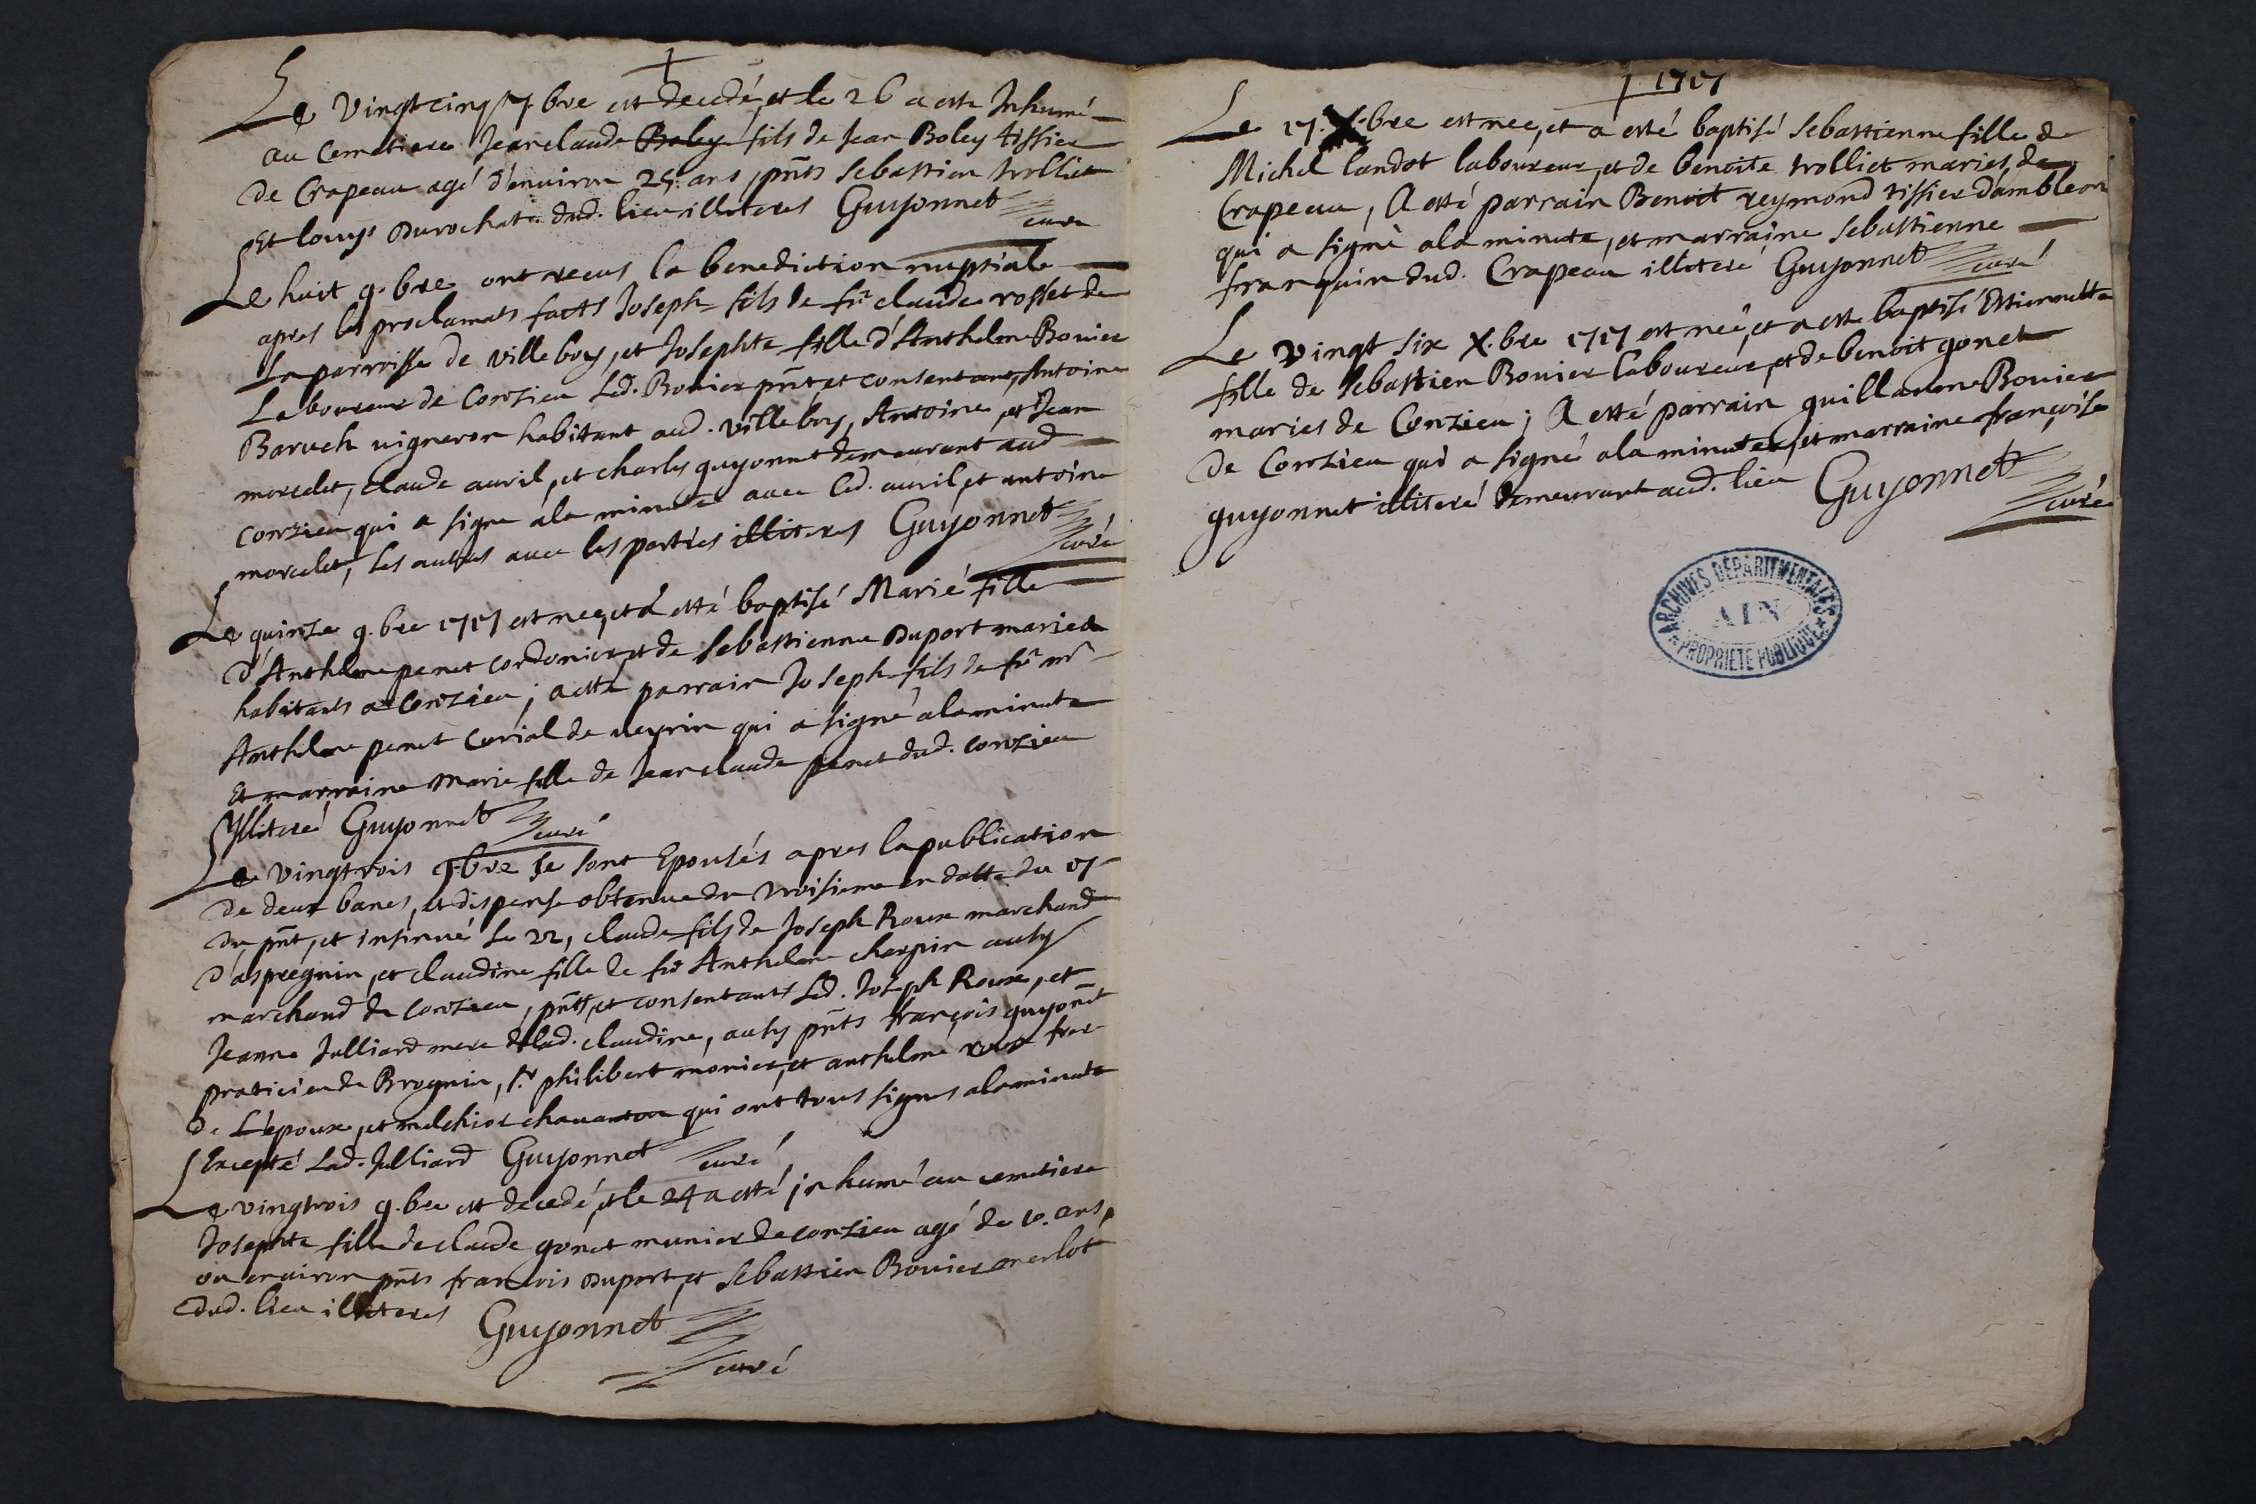 Le vingtcinq 7.bre est decedé, et le 26 a esté Inhumé
au Cemetiere Jeanclaude Boley fils de Jean Boley tissier
de Crapeau agé d'environ 25 ans, pnts Sebastien trolliet
Et louys Durochat dud. lieu illiteres Guyonnet curé
Le huit 9.bre ont receus la benediction nuptiale
apres les proclamats faits Joseph fils de fû claude rosset de
La parroisse de villeboys, et Josephte fille d'Anthelme Bovier
Laboureur de Conzieu Led. Bovier pnt, et consentant, Antoine
Baruch vigneron habitant aud. villeboys, Antoine, et Jean
morcelet, claude avril, et charles guyonnet demeurant aud
conzieu qui a signé a la minute avec led. avril, et antoine
morcelet, les autres avec les parties illiteres Guyonnet curé
Le quinze 9.bre 1717 est neé, et a esté baptisé Marié fille
d'Anthelme penet cordonier, et de Sebastienne Duport mariés
habitants a Conzieu; a esté parrain Joseph fils de fû mr
Anthelme penet curial de veyrin qui a signé a la minute
Et marraine Marie fille de Jeanclaude penet dud. conzieu
Illiteré Guyonnet curé
Le vingtrois 9.bre se sont Epousés apres la publication
de deux bancs, et dispense obtenue du troisieme en datte du 17
du pnt, et insinué le 22, claude fils de Joseph Roux marchand
d'aspregnin, et claudine fille de fû Anthelme charpin aussy
marchand de Conzieu, pnts, et consentants Led. Joseph Roux, et
Jeanne Julliard mere de lad. claudine, aussy pnts françois guyonet
praticien de Brognin, Sr philibert monier, et anthelme roux frere
de L'epoux, et melchior chavanton qui ont tous signés a la minute
Excepté Lad. Julliard Guyonnet curé
Le vingtrois 9.bre est decedé, et le 24 a esté inhumé au cemetiere
Josephte fille de claude gonet munier de conzieu agé de 10. ans,
ou environ pnts francois Duport, et Sebastien Bovier merlot
dud. lieu illiteres Guyonnet
curé
1717
Le 17. X.bre est neé, et a esté baptisé Sebastienne fille de
Michel landot laboureur, et de benoite trolliet mariés, de
Crapeau, A esté parrain Benoit reymond tissier d'ambleon
qui a signé a la minute, et marraine Sebastienne
franquin dud. Crapeau illiteré Guyonnet curé
Le vingt six X.bre 1717 est neé, et a esté baptisé
fille de Sebastien Bovier laboureur, et de benoit gonet
mariés de Conzieu; A esté parrain guillaume Bovier
de Conzieu qui a signé a la minute, et marraine françoise
guyonnet illiteré demeurant aud. lieu Guyonnet
curé
ARCHIVES DÉPARTEMENTALES
AIN
PROPRIÉTÉ PUBLIQUE